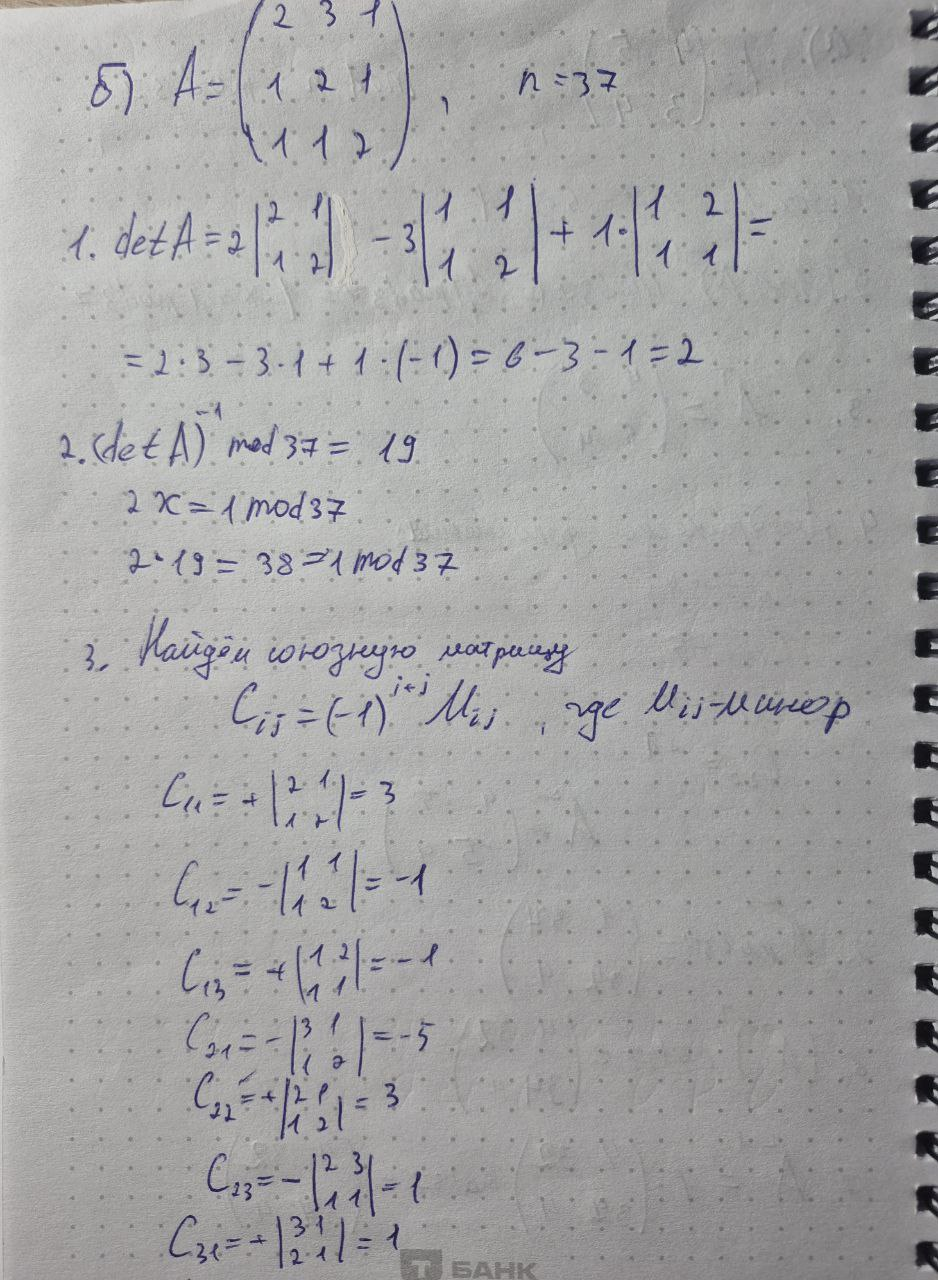 2 3 1
б) A = 1 2 1 , n = 37
1 1 2
1. det A = 2 |2 1; 1 2| - 3 |1 1; 1 2| + 1· |1 2; 1 1| =
= 2·3 - 3·1 + 1·(-1) = 6 - 3 - 1 = 2
2. (det A)^-1 mod 37 = 19
2x = 1 mod 37
2·19 = 38 = 1 mod 37
3. Найдём союзную матрицу
C_ij = (-1)^i+j M_ij , где M_ij - минор
C_11 = + |2 1; 1 2| = 3
C_12 = - |1 1; 1 2| = -1
C_13 = + |1 2; 1 1| = -1
C_21 = - |3 1; 1 2| = -5
C_22 = + |2 1; 1 2| = 3
C_23 = - |2 3; 1 1| = 1
C_31 = + |3 1; 2 1| = 1
Т БАНК